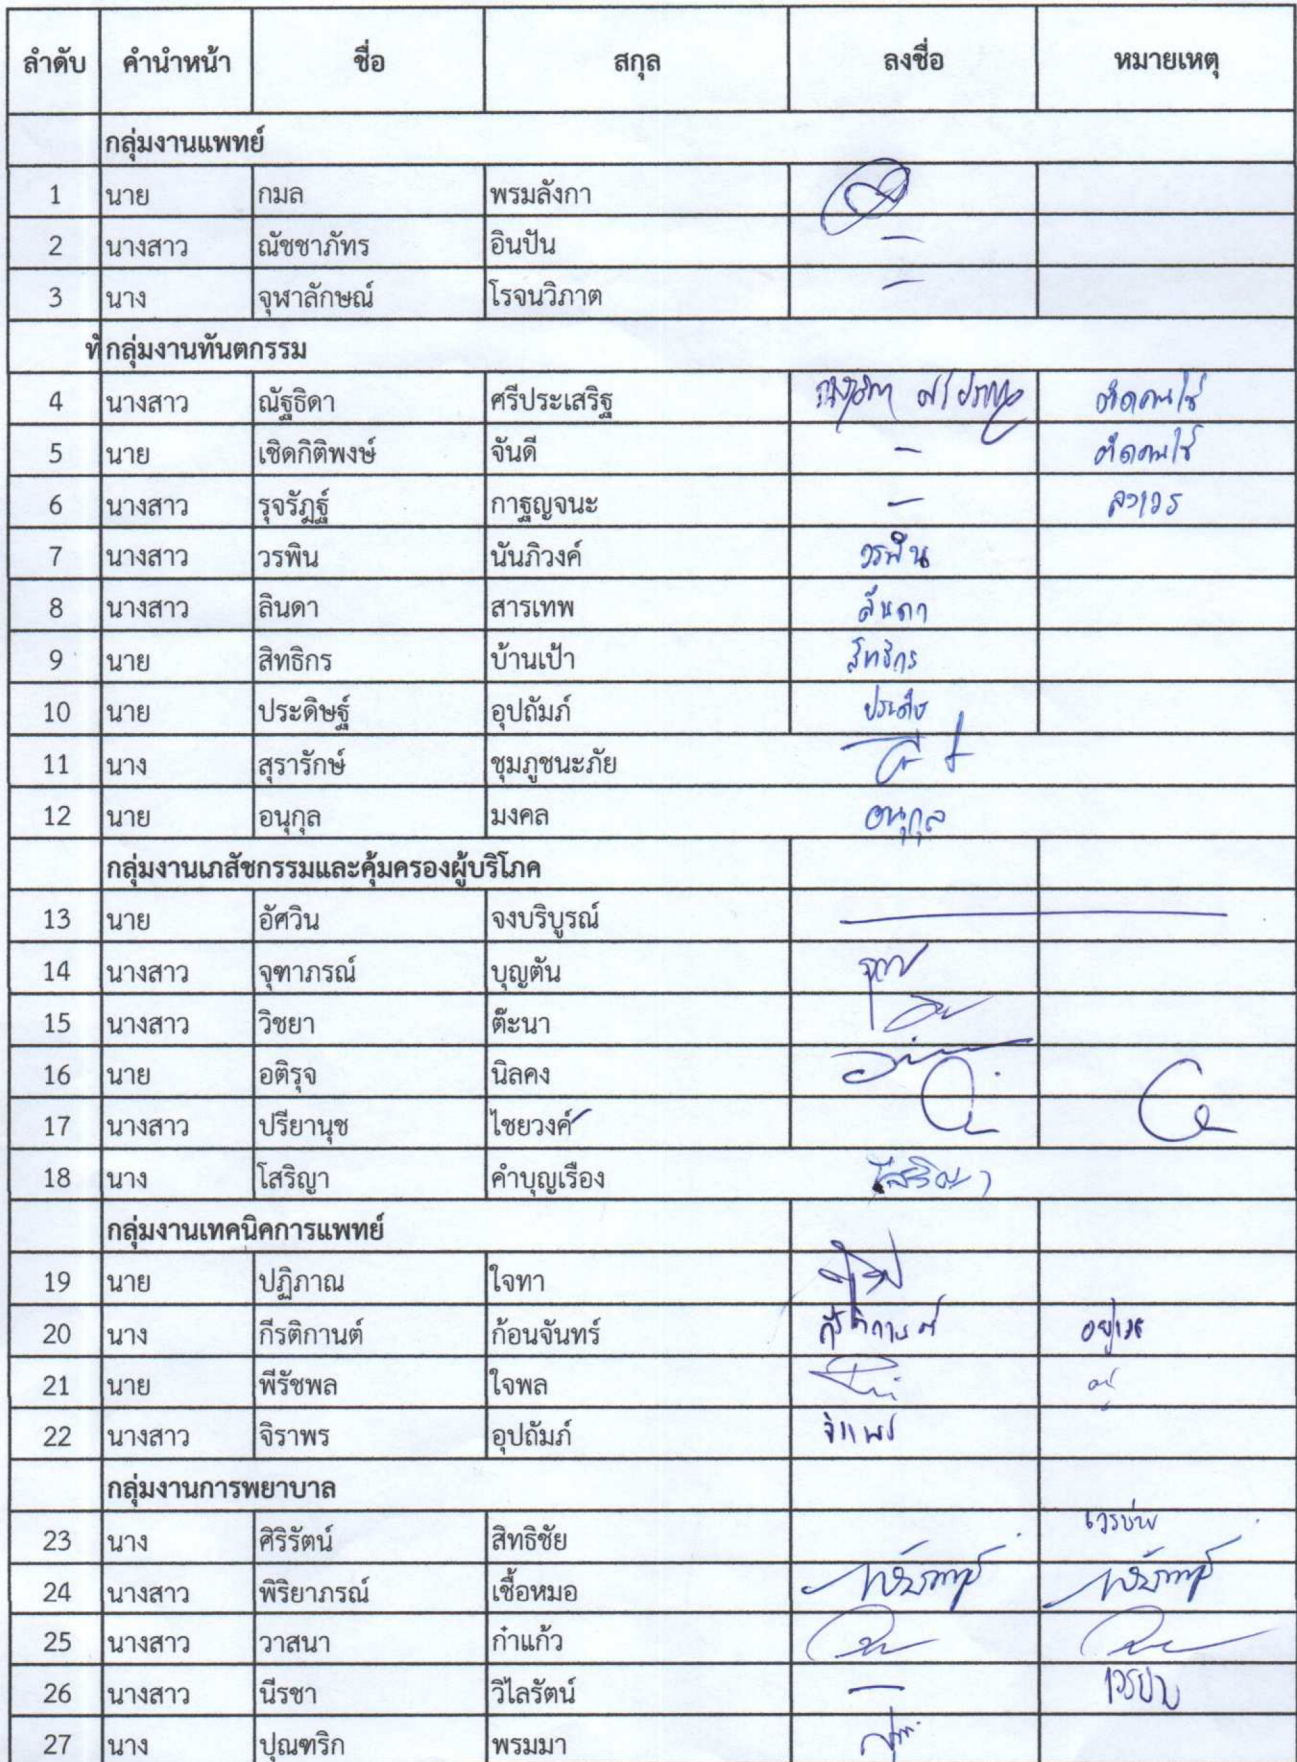 ลำดับ คำนำหน้า ชื่อ สกุล ลงชื่อ หมายเหตุ
กลุ่มงานแพทย์
1 นาย กมล พรมลังกา
2 นางสาว ณัชชาภัทร อินปัน –
3 นาง จุฬาลักษณ์ โรจนวิภาต –
ทักลุ่มงานทันตกรรม
4 นางสาว ณัฐธิดา ศรีประเสริฐ ติดคนไข้
5 นาย เชิดกิติพงษ์ จันดี – ติดคนไข้
6 นางสาว รุจรัฎฐ์ กาฐญจนะ – ลงเวร
7 นางสาว วรพิน นันภิวงค์ วรพิน
8 นางสาว ลินดา สารเทพ ลินดา
9 นาย สิทธิกร บ้านเป้า สิทธิกร
10 นาย ประดิษฐ์ อุปถัมภ์
11 นาง สุรารักษ์ ชุมภูชนะภัย
12 นาย อนุกุล มงคล อนุกุล
กลุ่มงานเภสัชกรรมและคุ้มครองผู้บริโภค
13 นาย อัศวิน จงบริบูรณ์
14 นางสาว จุฑาภรณ์ บุญตัน
15 นางสาว วิชยา ต๊ะนา
16 นาย อติรุจ นิลคง
17 นางสาว ปรียานุช ไชยวงค์
18 นาง โสริญา คำบุญเรือง โสริญา
กลุ่มงานเทคนิคการแพทย์
19 นาย ปฏิภาณ ใจทา
20 นาง กีรติกานต์ ก้อนจันทร์ กีรติกานต์ อยู่เวร
21 นาย พีรัชพล ใจพล
22 นางสาว จิราพร อุปถัมภ์ จิราพร
กลุ่มงานการพยาบาล
23 นาง ศิริรัตน์ สิทธิชัย เวรบ่าย
24 นางสาว พิริยาภรณ์ เชื้อหมอ
25 นางสาว วาสนา ก๋าแก้ว
26 นางสาว นีรชา วิไลรัตน์ – เวรบ่าย
27 นาง ปุณฑริก พรมมา